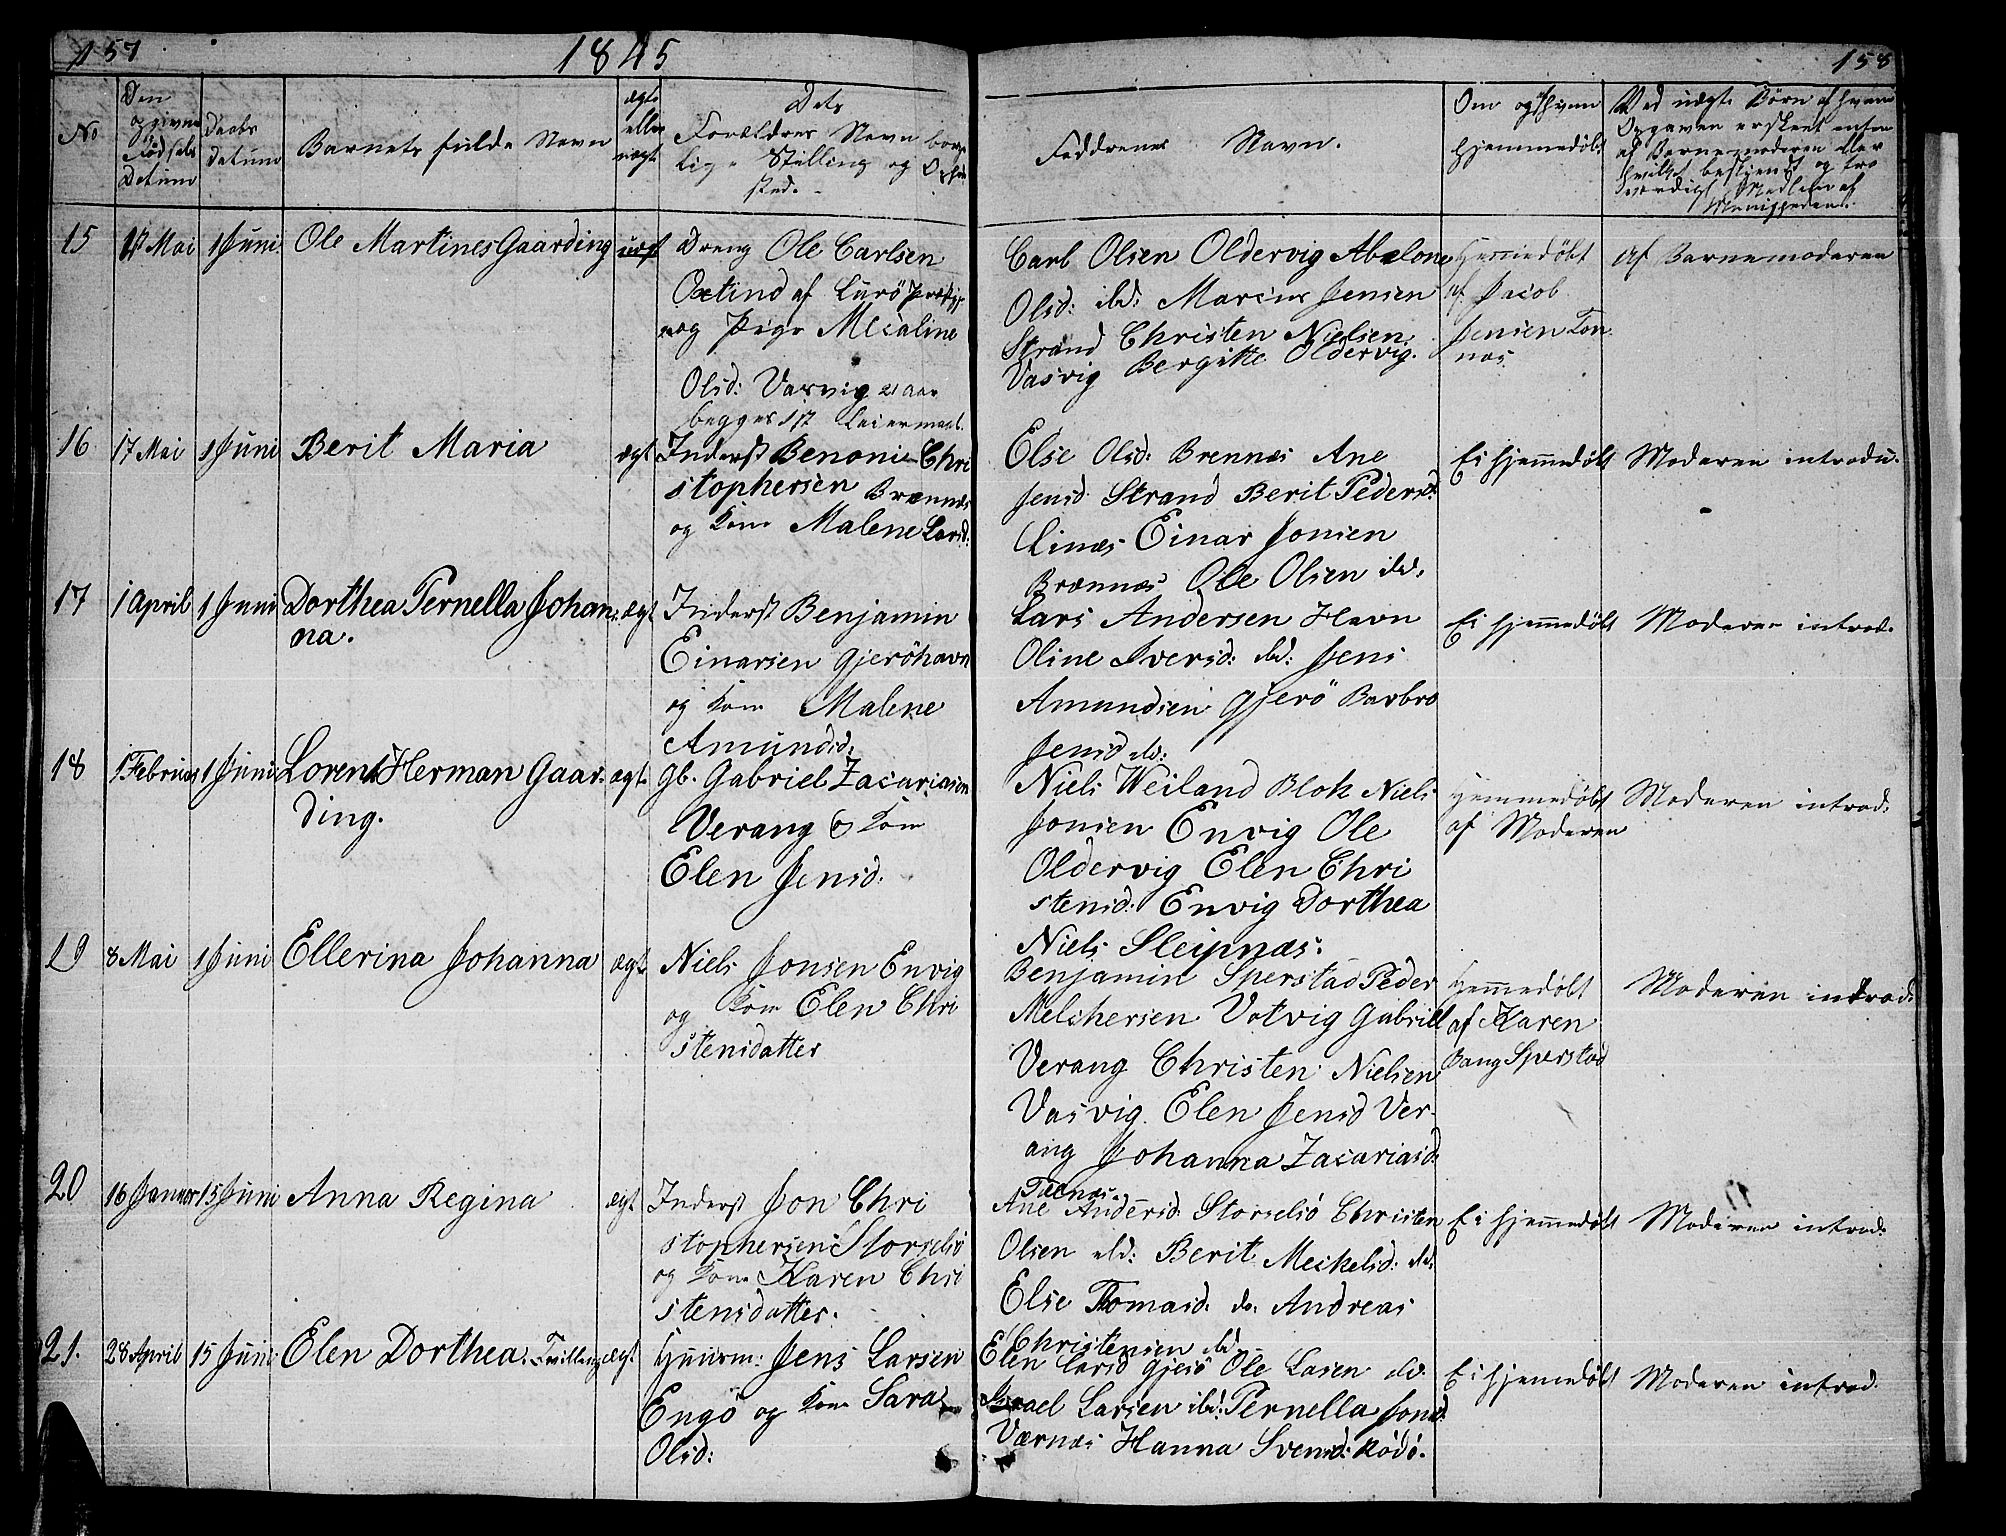 157
1845
158
No
Den opgivne Fødsels Datum
Daabs Datum
Barnets fulde Navn
ægte eller uægt.
Dets Forældres Navn borgelige Stilling og Opholdsted.
Faddrenes Navn.
Om og af hvem hjemmedøbt
Ved uægte Børn af hvem Opgaven er skeet enten af Barnemoderen eller hvilket bekjendt og troværdigt Medlem af Menigheden.
15
17 Mai
1 Juni
Ole Martines Gaarding
uægt
Dreng Ole Carlsen
Oxtind af Lurö Præstgj
og Pige Micaline
Olsd: Vasvig 21 Aar
begges 1st Leiermaal.
Carl Olsen Oldervig Abelone
Olsd: ibd: Marcus Jensen
Strand Christen Nielsen
Vasvig Bergitte Oldervig.
Hjemedøbt
af Jacob
Jensen Ton
nes
Af Barnemoderen
16
17 Mai
1 Juni
Berit Maria
ægt
Inderst Benoni Chri
stophersen Brænnæs
og Kone Malene Larsd.
Else Olsd: Brennæs Ane
Jensd Strand Berit Pedersd
Linæs Einar Jonsen
Brænnæs Ole Olsen ibd.
Ei hjemmedøbt
Moderen introdu.
17
1 April
1 Juni
Dorthea Pernella Johan
na.
ægt
Inderst Benjamin
Einarsen Gjeröhavn
og Kone Malene
Amundsd.
Lars Andersen Havn
Oline Iversd: ibd: Jens
Amundsen Gjerö Barbro
Jensd ibd:
Ei hjemmedøbt
Moderen introd.
18
1 Februar
1 Juni
Lorents Herman Gaar-
ding.
ægt.
Gb. Gabriel Zacariasen
Verang & Kone
Elen Jensd.
Niels Weiland Blok Niels
Jonsen Envig Ole
Oldervig Elen Chri
stensd: Envig Dorthea
Niels Sleipnæs.
Hjemmedøbt
af Moderen
Moderen introd:
19
8 Mai
1 Juni
Ellerina Johanna
ægt
Niels Jonsen Envig
og Kone Elen Chri
stensdatter
Benjamin Sperstad Peder
Melchersen Votvig Gabriel
Verang Christen Nielsen
Vasvig. Elen Jensd Ver-
ang Johanna Zacariasd.
Hjemmedøbt
af Karen
Bang Sperstad
Moderen introd:
20
16 Januar
15 Juni
Anna Regina
ægt
Inderst Jon Chri
stophersen Storselsö
og Kone Karen Chri
stensdatter.
Ane Andersd. Storselsö Christen
Olsen ibd: Berit Meckelsd: ibd.
Else Tomasd. do. Andreas
Christensen ibd.
Ei hjemmedøbt
Moderen introd:
21.
28 April
15 Juni
Elen Dorthea. Tvilling
ægt
Huusm: Jens Larsen
Engö og Kone Sara
Olsd:
Elen Larsd Gjesö Ole Lasen ibd.
Israel Larsen ibd: Pernella Jonsd.
Værnæs Hanna Svensd: Rödö.
Ei hjemmedøbt
Moderen introd.